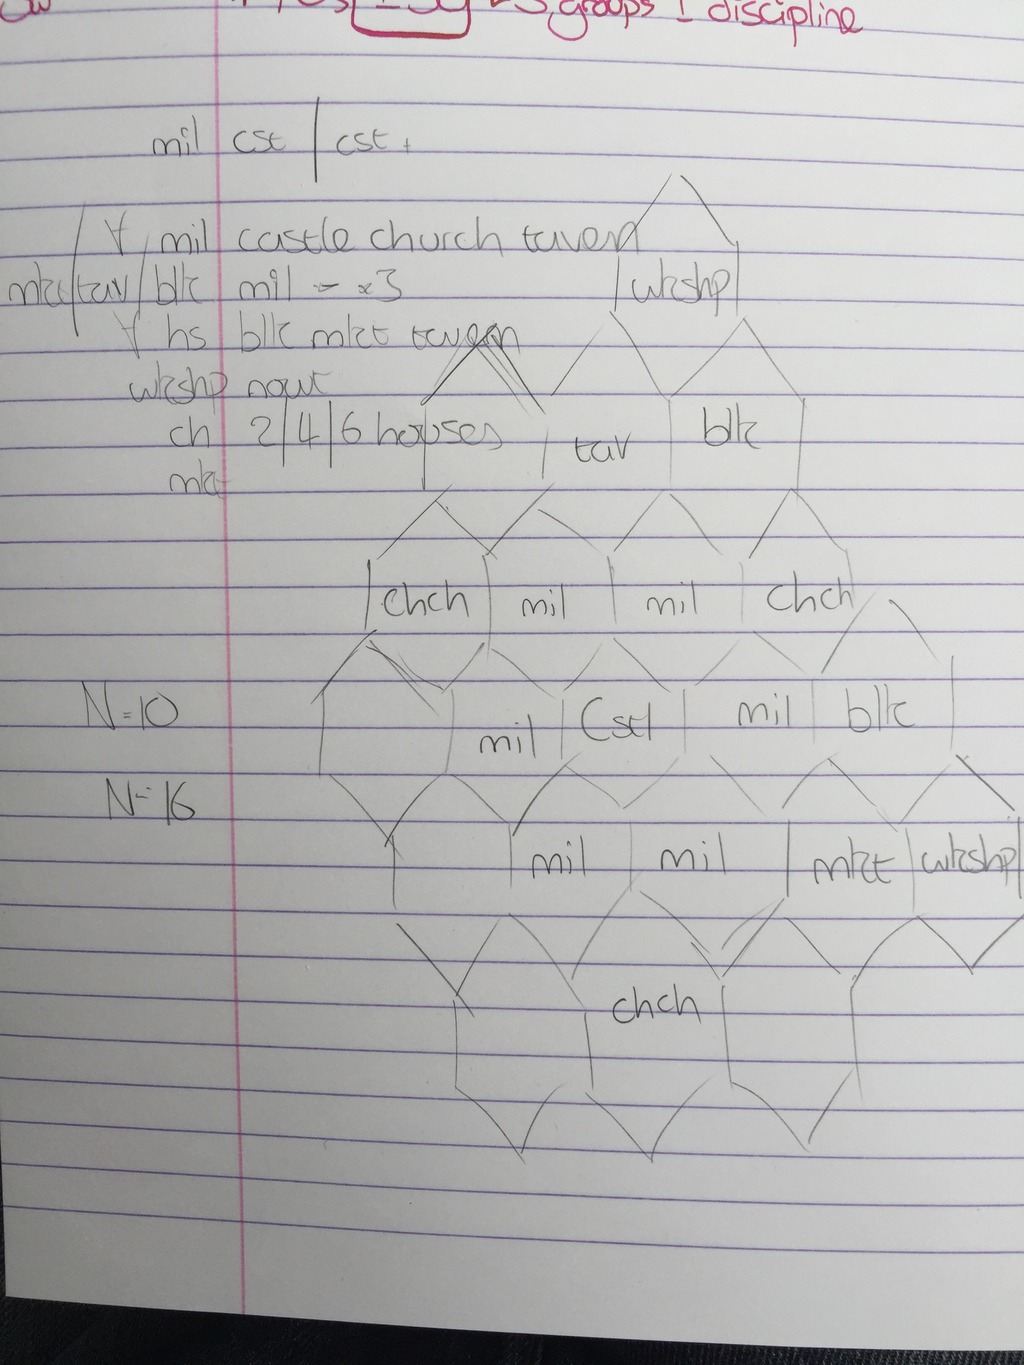 groups 1 discipline
mil cst | cst +
∀ mil castle church tavern
mkt/tav/blk mil - x3
wkshp
∀ hs blk mkt tavern
wkshp nowt
ch 2/4/6 houses
tav blk
mkt
chch mil mil chch
N=10
mil Cstl mil blk
N=16
mil mil mkt wkshp
chch